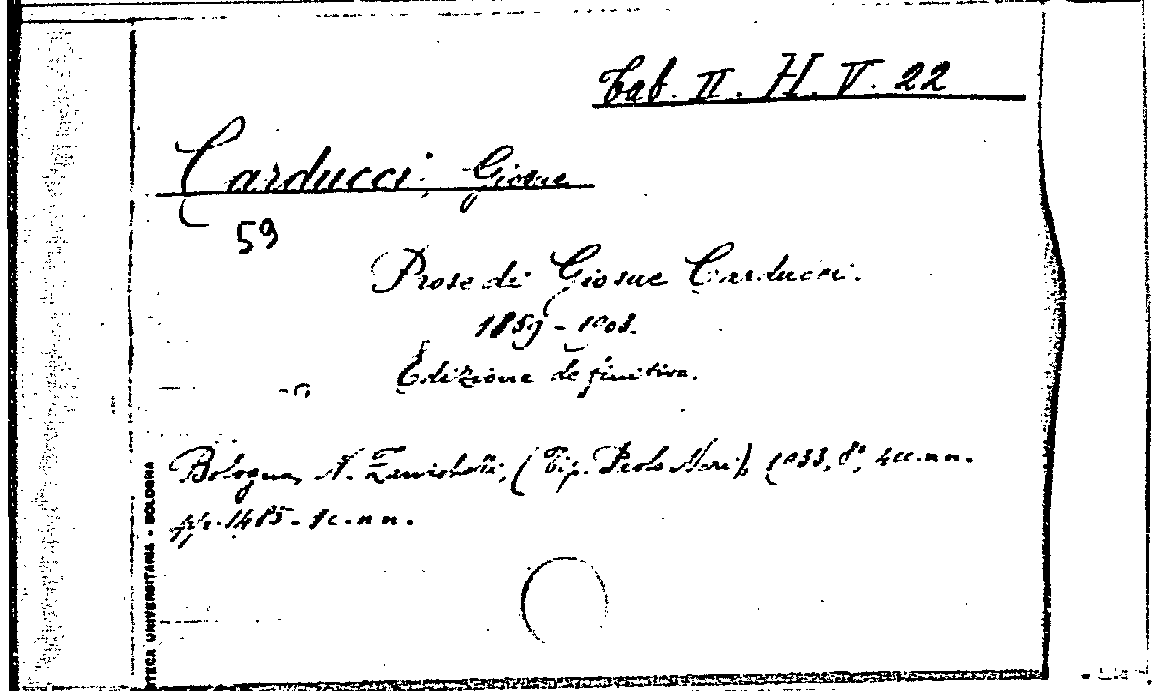 Tab. II. H. V. 22
Carducci, Giosue
59
Prose di Giosue Carducci.
1859-1903.
Edizione definitiva.
Bologna, N. Zanichelli, (Tip. Paolo Neri), 1933, 8°, 4cc.nn.
pp. 1485-1c.nn.
TECA UNIVERSITARIA - BOLOGNA